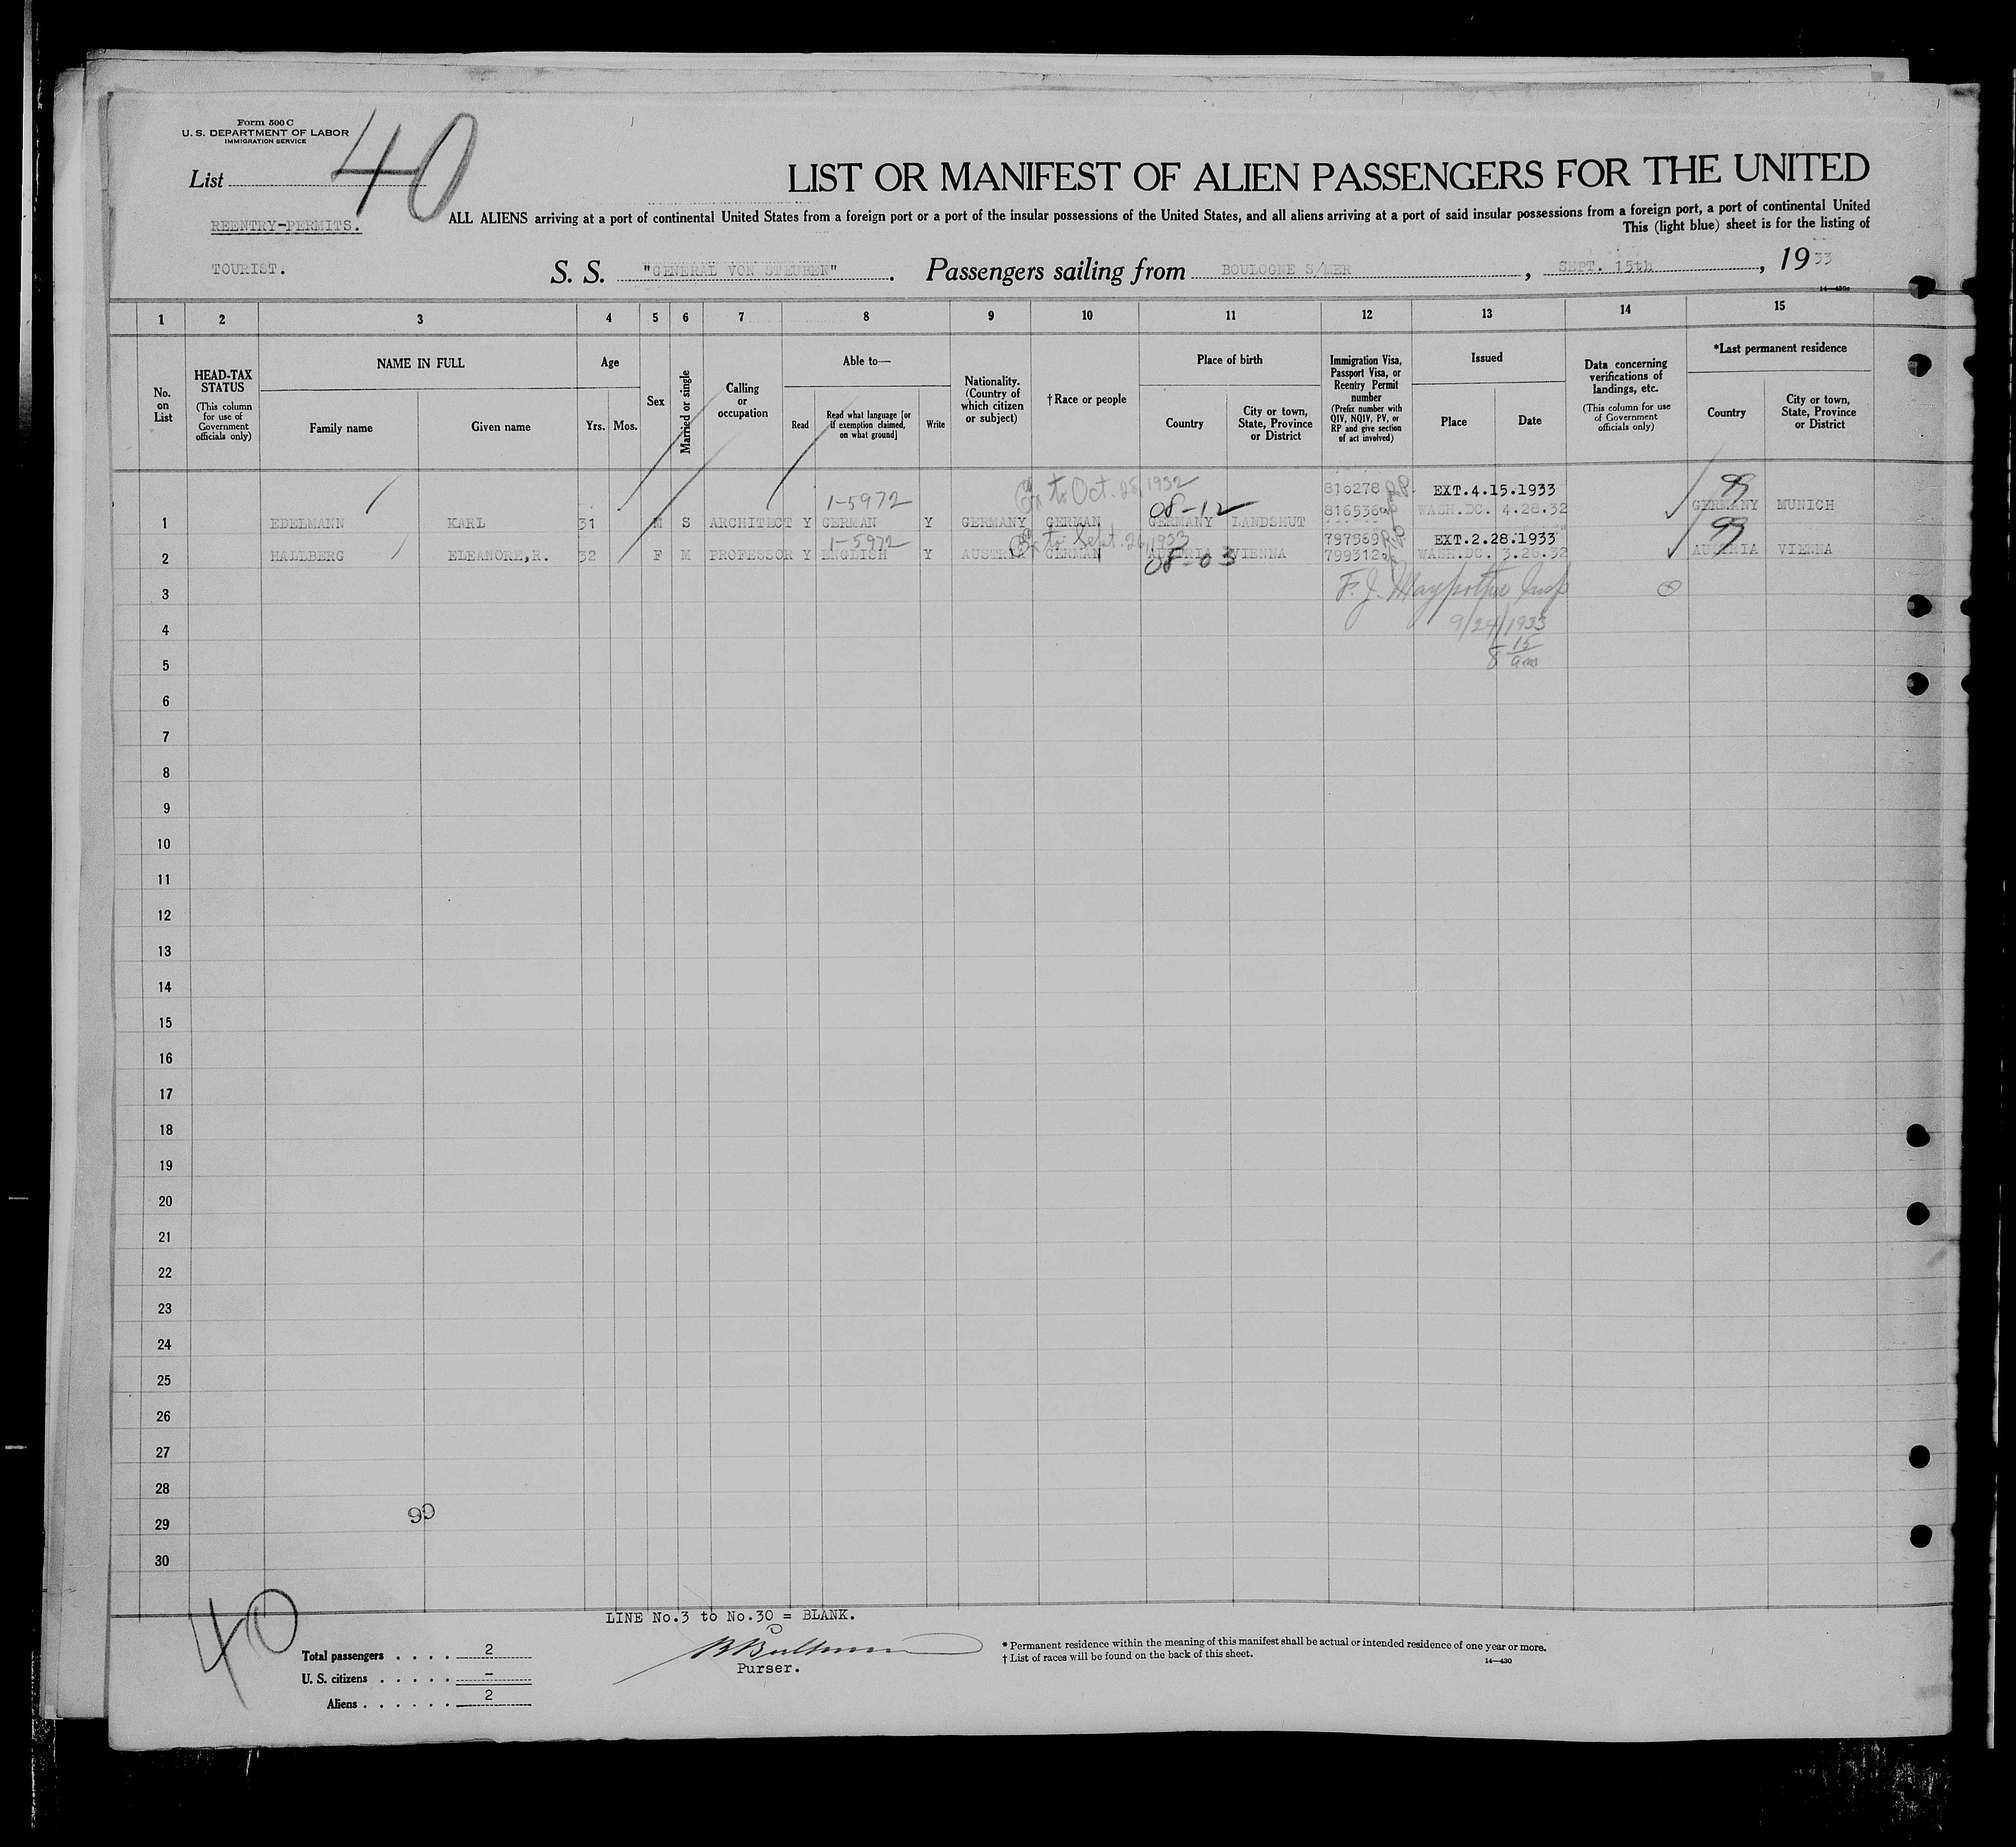 Form 500 C
U. S. DEPARTMENT OF LABOR
IMMIGRATION SERVICE
List 40
LIST OR MANIFEST OF ALIEN PASSENGERS FOR THE UNITED
REENTRY-PERMITS.
ALL ALIENS arriving at a port of continental United States from a foreign port or a port of the insular possessions of the United States, and all aliens arriving at a port of said insular possessions from a foreign port, a port of continental United
This (light blue) sheet is for the listing of
TOURIST.
S. S. "GENERAL VON STEUBEN". Passengers sailing from BOULOGNE S/MER, SEPT. 15th, 1933
14—430a
1 2 3 4 5 6 7 8 9 10 11 12 13 14 15
No. on List
HEAD-TAX STATUS
(This column for use of Government officials only)
NAME IN FULL
Family name
Given name
Age
Yrs. Mos.
Sex
Married or single
Calling or occupation
Able to—
Read
Read what language [or if exemption claimed, on what ground]
Write
Nationality. (Country of which citizen or subject)
†Race or people
Place of birth
Country
City or town, State, Province or District
Immigration Visa, Passport Visa, or Reentry Permit number
(Prefix number with QIV, NQIV, PV, or RP and give section of act involved)
Issued
Place
Date
Data concerning verifications of landings, etc.
(This column for use of Government officials only)
*Last permanent residence
Country
City or town, State, Province or District
1-5972 to Oct. 28/1932 08-12 810278 EXT.4.15.1933 99
1 EDELMANN KARL 31 M S ARCHITECT Y GERMAN Y GERMANY GERMAN GERMANY LANDSHUT 816536 WASH.DC. 4.28.32 GERMANY MUNICH
1-5972 to Sept. 26, 1933 797569 EXT.2.28.1933 99
2 HALLBERG ELEANORE,R. 32 F M PROFESSOR Y ENGLISH Y AUSTRIA GERMAN AUSTRIA VIENNA 799312 WASH.DC. 3.26.32 AUSTRIA VIENNA
08-03
3 F. J. Insp
4 9/24/1933
5 8 15 am
6
7
8
9
10
11
12
13
14
15
16
17
18
19
20
21
22
23
24
25
26
27
28
99
29
30
40
LINE No.3 to No.30 = BLANK.
Total passengers . . . . 2
U. S. citizens . . . . . –
Aliens . . . . . . 2
Purser.
* Permanent residence within the meaning of this manifest shall be actual or intended residence of one year or more.
† List of races will be found on the back of this sheet.
14—430